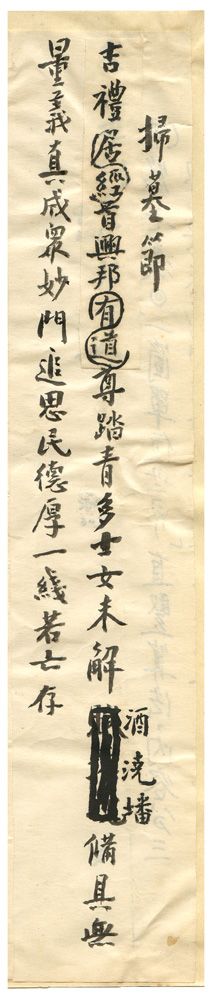 掃墓節
吉禮居經首興邦有道尊踏青多士女未解酒澆墦備具無
量義真成眾妙門追思民德厚一綫若亡存